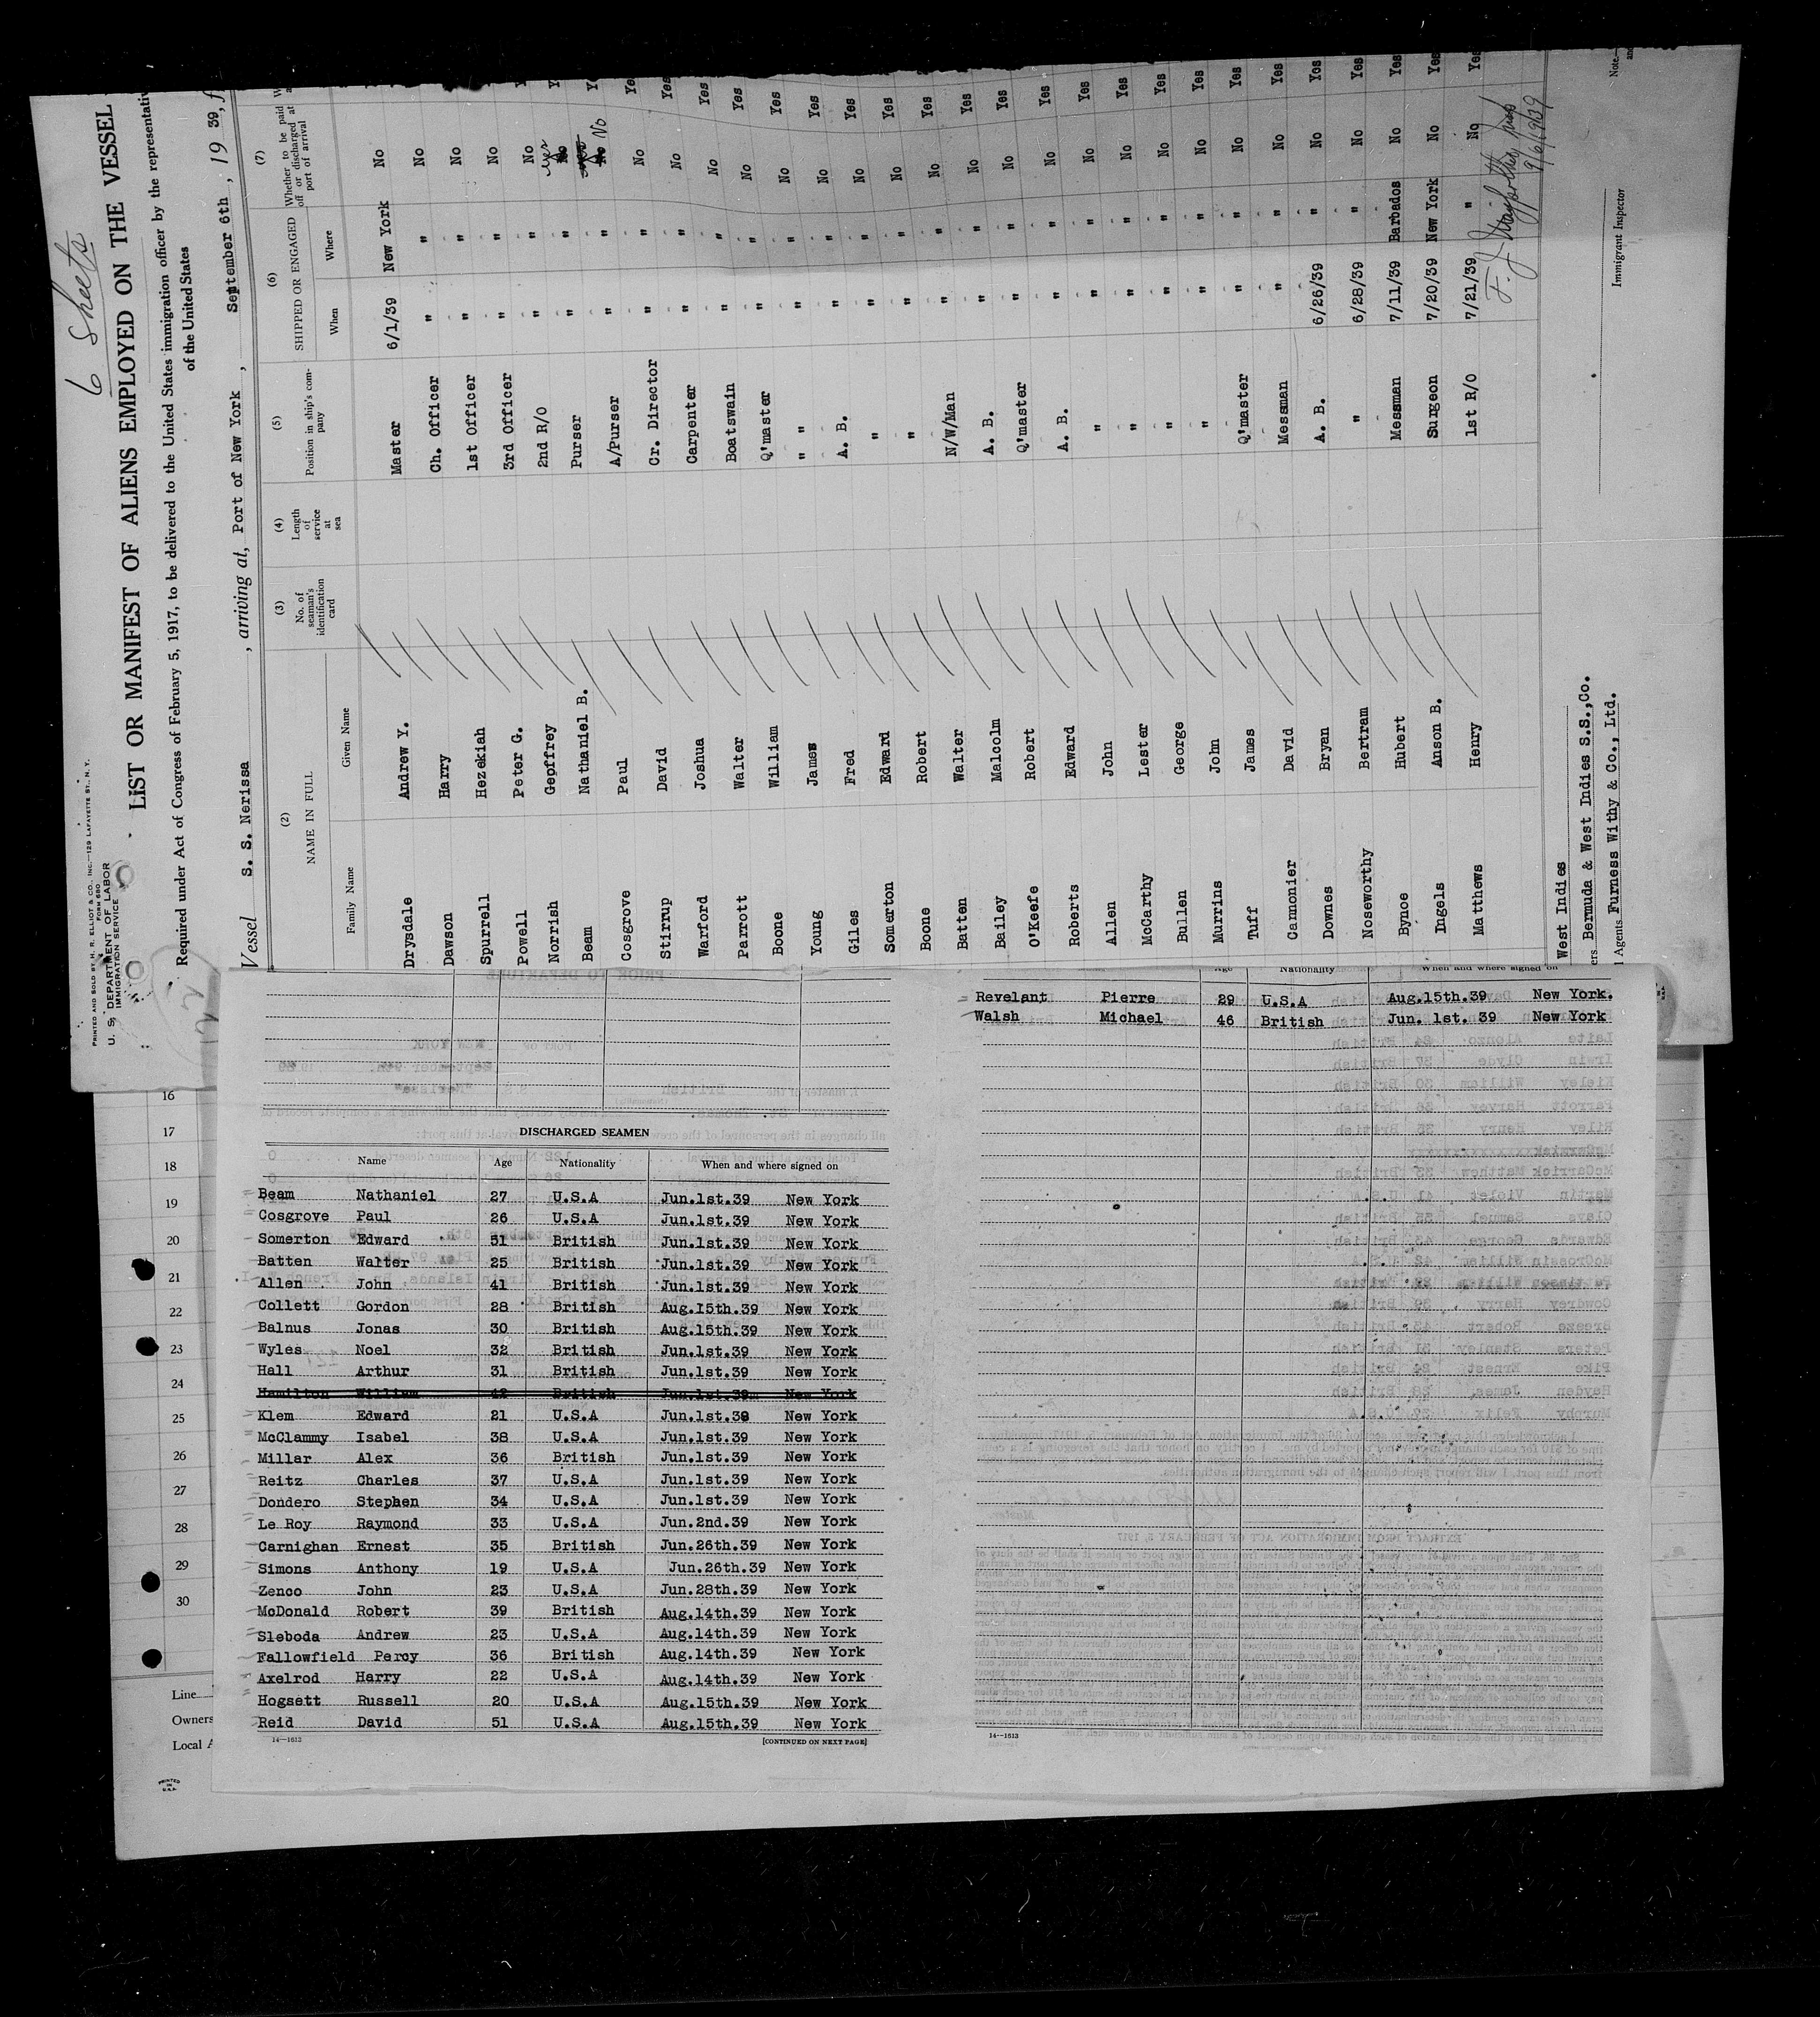 6 Sheets
PRINTED AND SOLD BY H. R. ELLIOT & CO., INC.—129 LAFAYETTE ST., N. Y.
FORM 680
U. S. DEPARTMENT OF LABOR
IMMIGRATION SERVICE
LIST OR MANIFEST OF ALIENS EMPLOYED ON THE VESSEL
Required under Act of Congress of February 5, 1917, to be delivered to the United States immigration officer by the representativ
of the United States
Vessel S. S. Nerissa , arriving at, Port of New York , September 6th , 19 39, f
(2) NAME IN FULL (3) No. of seaman's identification card (4) Length of service at sea (5) Position in ship's company (6) SHIPPED OR ENGAGED (7) Whether to be paid off or discharged at port of arrival
Family Name Given Name When Where
Drysdale Andrew Y. Master 6/1/39 New York No
Dawson Harry Ch. Officer " " No
Spurrell Hezekiah 1st Officer " " No
Powell Peter G. 3rd Officer " " No
Norrish Gepffrey 2nd R/O " " No
Beam Nathaniel B. Purser " " No yes
Cosgrove Paul A/Purser " " No No
Stirrup David Cr. Director " " No Yes
Warford Joshua Carpenter " " No Yes
Parrott Walter Boatswain " " No Yes
Boone William Q'master " " No Yes
Young James " " " " No Yes
Giles Fred A. B. " " No Yes
Somerton Edward " " " No Yes
Boone Robert " " " No Yes
Batten Walter N/W/Man " " No Yes
Bailey Malcolm A. B. " " No Yes
O'Keefe Robert Q'master " " No Yes
Roberts Edward A. B. " " No Yes
Allen John " " " No Yes
McCarthy Lester " " " No Yes
Bullen George " " " No Yes
Murrins John " " " No Yes
Tuff James Q'master " " No Yes
Cannonier David Messman " " No Yes
Downes Bryan A. B. 6/26/39 " No Yes
Noseworthy Bertram " 6/28/39 " No Yes
Bynoe Hubert Messman 7/11/39 Barbados No Yes
Ingels Anson B. Surgeon 7/20/39 New York No Yes
Matthews Henry 1st R/O 7/21/39 " No Yes
9/6/1939
West Indies
ers Bermuda & West Indies S.S.,Co.
l Agents Furness Withy & Co., Ltd.
Immigrant Inspector
Note.—
16
17
18
19
20
21
22
23
24
25
26
27
28
29
30
Line
Owners
Local A
PRINTED IN U.S.A.
DISCHARGED SEAMEN
Name Age Nationality When and where signed on
Beam Nathaniel 27 U.S.A Jun.1st.39 New York
Cosgrove Paul 26 U.S.A Jun.1st.39 New York
Somerton Edward 51 British Jun.1st.39 New York
Batten Walter 25 British Jun.1st.39 New York
Allen John 41 British Jun.1st.39 New York
Collett Gordon 28 British Aug.15th.39 New York
Balnus Jonas 30 British Aug.15th.39 New York
Wyles Noel 32 British Jun.1st.39 New York
Hall Arthur 31 British Jun.1st.39 New York
Hamilton William 42 British Jun.1st.39m New York
Klem Edward 21 U.S.A Jun.1st.39 New York
McClammy Isabel 38 U.S.A Jun.1st.39 New York
Millar Alex 36 British Jun.1st.39 New York
Reitz Charles 37 U.S.A Jun.1st.39 New York
Dondero Stephen 34 U.S.A Jun.1st.39 New York
Le Roy Raymond 33 U.S.A Jun.2nd.39 New York
Carnighan Ernest 35 British Jun.26th.39 New York
Simons Anthony 19 U.S.A Jun.26th.39 New York
Zenco John 23 U.S.A Jun.28th.39 New York
McDonald Robert 39 British Aug.14th.39 New York
Sleboda Andrew 23 U.S.A Aug.14th.39 New York
Fallowfield Percy 36 British Aug.14th.39 New York
Axelrod Harry 22 U.S.A Aug.14th.39 New York
Hogsett Russell 20 U.S.A Aug.15th.39 New York
Reid David 51 U.S.A Aug.15th.39 New York
14—1613 [CONTINUED ON NEXT PAGE]
Age Nationality When and where signed on
Revelant Pierre 29 U.S.A Aug.15th.39 New York.
Walsh Michael 46 British Jun. 1st. 39 New York
14—1613